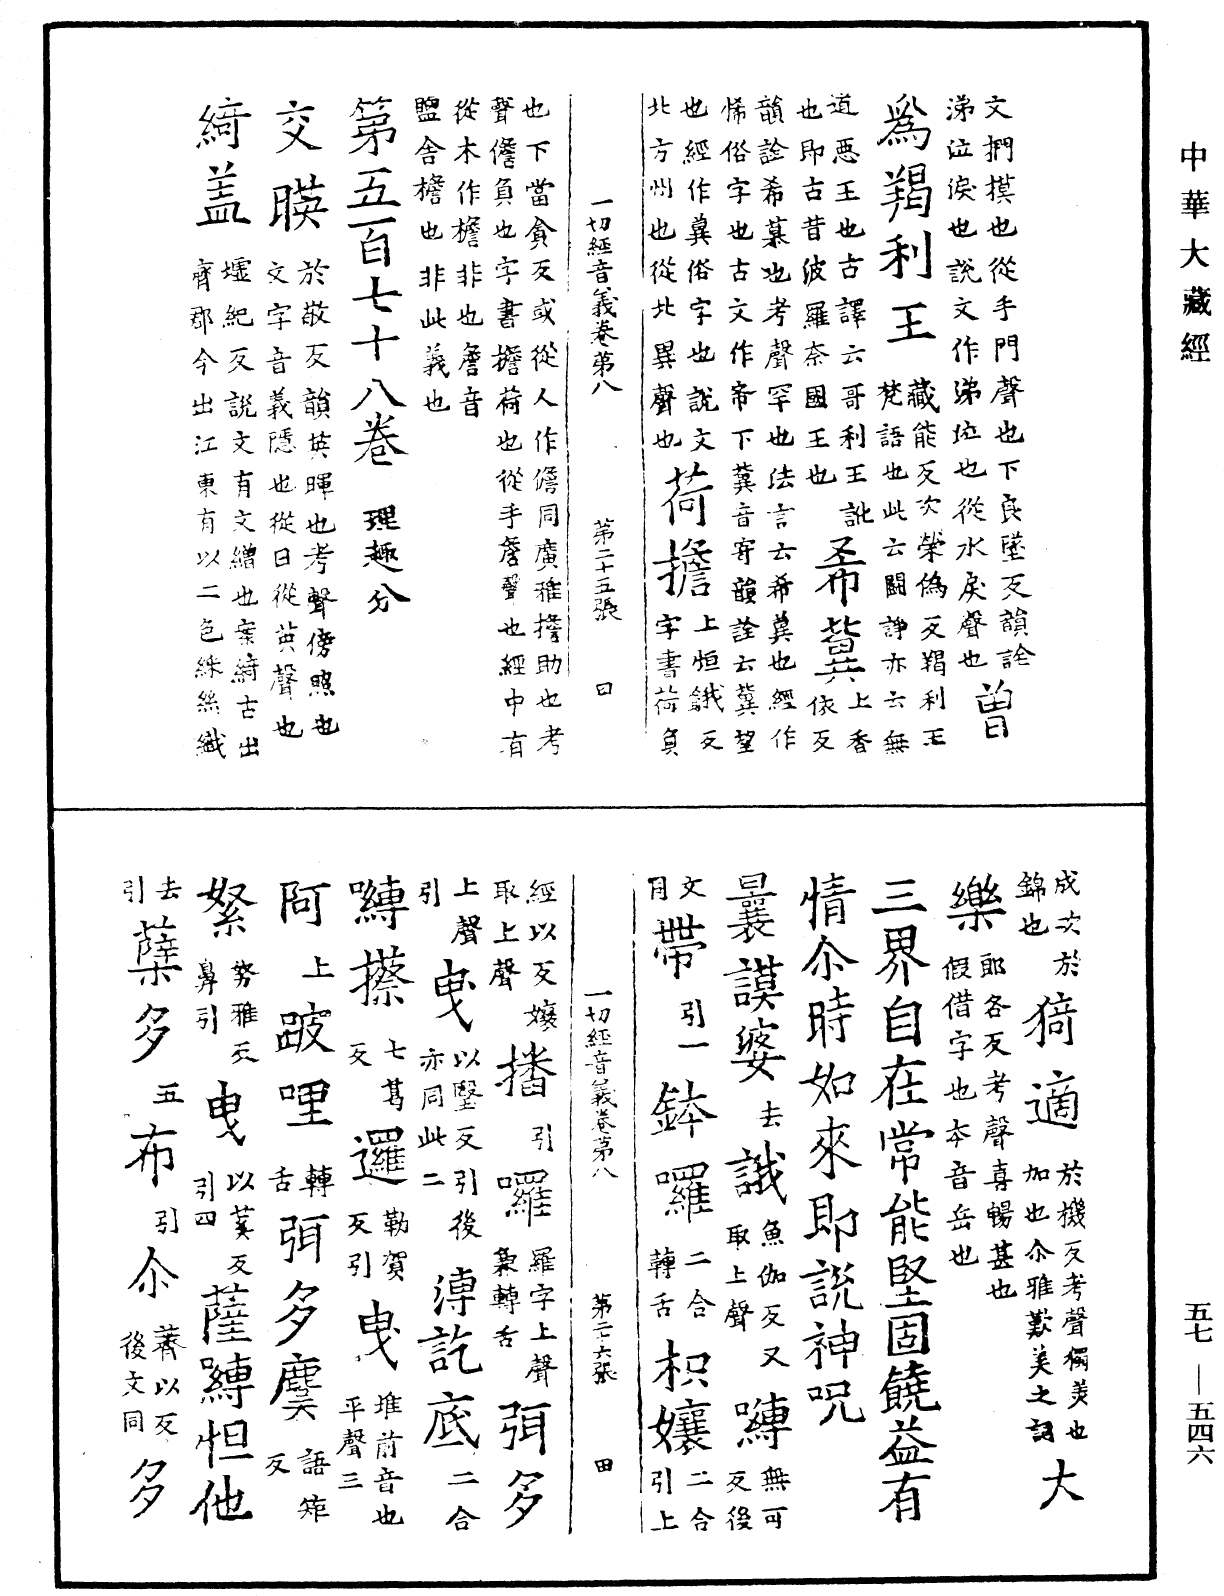 中華大藏經
文捫摸也從手門聲也下良墜反韻詮
涕泣淚也說文作㴃垃也從水戾聲也曾
爲羯利王藏能反次榮僞反羯利王
梵語也此云鬪諍亦云無
道惡王也古譯云哥利王訛
也即古昔波羅奈國王也希冀上香
依反
韻詮希慕也考聲罕也法言云希冀也經作
悕俗字也古文作帝下冀音寄韻詮云冀望
也經作兾俗字也說文
北方州也從北異聲也荷擔上恒餓反
字書荷負
一切經音義卷第八 第二十五張 四
也下當貪反或從人作儋同廣雅擔助也考
聲儋負也字書擔荷也從手詹聲也經中有
從木作檐非也詹音
鹽舍檐也非此義也
第五百七十八卷 理趣分
交暎於敬反韻英暉也考聲傍照也
文字音義隱也從日從英聲也
綺盖墟紀反說文有文繒也案綺古出
齊郡今出江東有以二色綵絲織
成次於
錦也猗適於機反考聲獨美也
加也尒雅歎美之詞大
樂郎各反考聲喜暢甚也
假借字也本音岳也
三界自在常能堅固饒益有
情尒時如來即說神呪
曩謨婆去誐魚伽反又
取上聲嚩無可
反後
文
同帶引一鉢囉二合
轉舌枳孃二合
引上
一切經音義卷第八 第二十六張 田
經以反孃
取上聲播引囉羅字上聲
兼轉舌弭多
上聲
引曳以堅反引後
亦同此二溥訖底二合
嚩攃七葛
反邏勒賀
反引曳堆前音也
平聲三
阿上跛哩轉
舌弭多麌語矩
反
拏努雅反
鼻引曳以䒾反
引四薩嚩怛他
去
引蘖多五布引尒薺以反
後文同多
五七—五四六